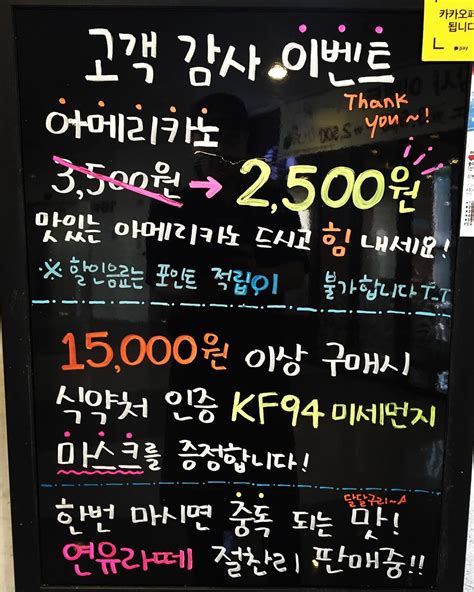 카카오페
됩니다
pay
고객 감사 이벤트
Thank
you~!
아메리카노
3,500원 → 2,500원
맛있는 아메리카노 드시고 힘 내세요!
※ 할인음료는 포인트 적립이 불가합니다 T_T
15,000원 이상 구매시
식약처 인증 KF94 미세먼지
마스크를 증정합니다!
달달구리~
한번 마시면 중독 되는 맛!
연유라떼 절찬리 판매중!!